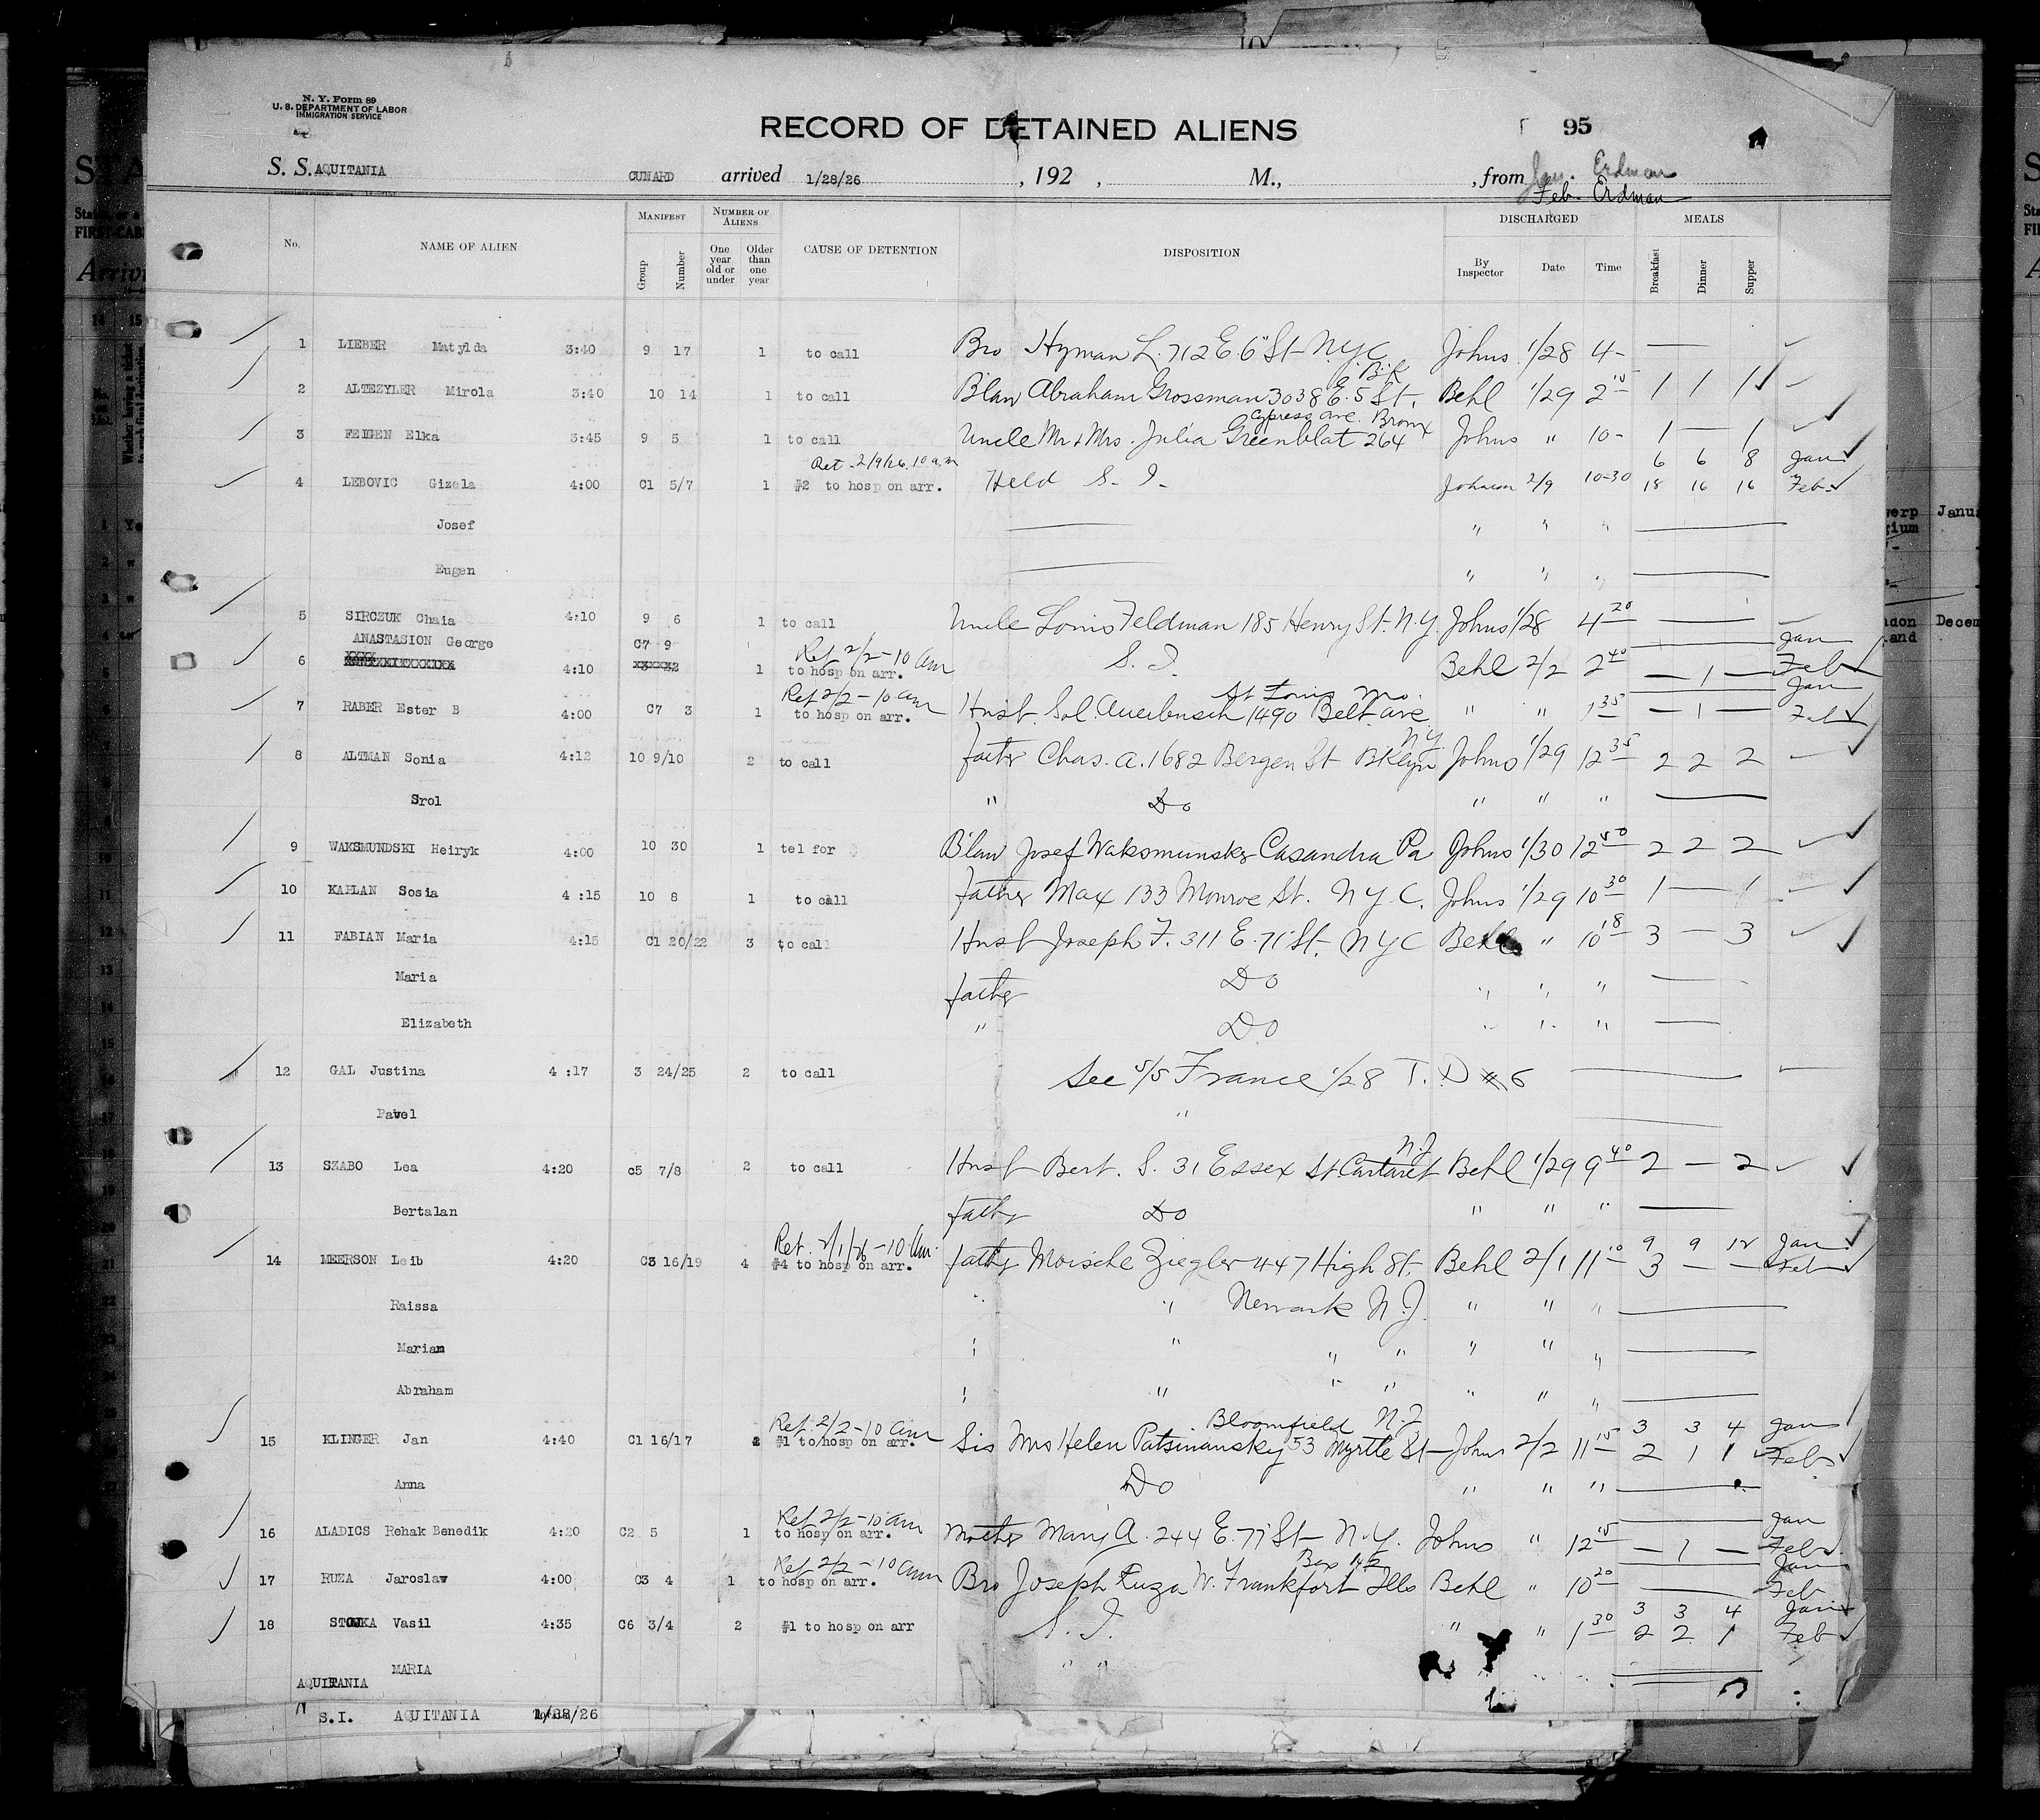 N. Y. Form 89
U. S. DEPARTMENT OF LABOR
IMMIGRATION SERVICE
RECORD OF DETAINED ALIENS 95
S. S. AQUITANIA CUNARD arrived 1/28/26 , 192 , M., , from Jan. Erdman
Feb. Erdman
No. NAME OF ALIEN MANIFEST Group Number NUMBER OF ALIENS One year old or under Older than one year CAUSE OF DETENTION DISPOSITION DISCHARGED By Inspector Date Time MEALS Breakfast Dinner Supper
1 LIEBER Matylda 3:40 9 17 1 to call Bro Hyman L. 712 E 6" St NYC Johns 1/28 4-
2 ALTEZYLER Mirola 3:40 10 14 1 to call Blaw Abraham Grossman 3038 E. 5 St. Behl 1/29 2 15 1 1 1
Cypress ave. Bronx
3 FEIGEN Elka 3:45 9 5 1 to call Uncle Mr & Mrs. Julia Greenblat 264 Johns " 10- 1 — 1
Ret. 2/9/26. 10 am 6 6 8 Jan
4 LEBOVIC Gizela 4:00 C1 5/7 1 #2 to hosp on arr. Held S. I. Johnson 2/9 10-30 18 16 16 Feb
Josef " " "
Eugen " " "
5 SIRCZUK Chaia 4:10 9 6 1 to call Uncle Louis Feldman 185 Henry St. N.Y. Johns 1/28 4 20
ANASTASION George C7 9 Ret 2/2-10 am Jan
6 4:10 1 to hosp on arr. S. I. Behl 2/2 2 40 — 1 — Feb
Ret 2/2-10 am St Louis Mo. Jan
7 RABER Ester B 4:00 C7 3 1 to hosp on arr. Husb. Sol. Auerbusch 1490 Belt ave " " 1 35 — 1 — Feb
N.Y.
8 ALTMAN Sonia 4:12 10 9/10 2 to call father Chas. A. 1682 Bergen St Bklyn Johns 1/29 12 35 2 2 2
Srol " Do " " "
9 WAKSMUNDSKI Heiryk 4:00 10 30 1 tel for Blaw Josef Waksmunsky Casandra Pa Johns 1/30 12 50 2 2 2
10 KAPLAN Sosia 4:15 10 8 1 to call father Max 133 Monroe St. N Y C. Johns 1/29 10 30 1 — 1
11 FABIAN Maria 4:15 C1 20/22 3 to call Husb Joseph F. 311 E. 71 St. N Y C Behl " 10 18 3 — 3
Maria father Do " " "
Elizabeth " Do " " "
12 GAL Justina 4:17 3 24/25 2 to call See S/S France 1/28 T. D # 6
Pavel "
N.J.
13 SZABO Lea 4:20 C5 7/8 2 to call Husb Bert. S. 31 Essex St. Cartaret Behl 1/29 9 40 2 — 2
Bertalan father Do " " "
Ret. 2/1/26-10 am. 9 9 12 Jan
14 MEERSON Leib 4:20 C3 16/19 4 #4 to hosp on arr. father Moische Ziegler 447 High St. Behl 2/1 11 10 3 — — Feb
Raissa " " Newark N.J. " " "
Mariam " " " " " " "
Abraham " " " " " " "
Ret. 2/2-10 am Bloomfield N.J. 3 3 4 Jan
15 KLINGER Jan 4:40 C1 16/17 2 #1 to hosp on arr. Sis Mrs Helen Patsinansky 53 Myrtle St Johns 2/2 11 15 2 1 1 Feb
Anna Do " " "
Ret 2/2-10 am Jan
16 ALADICS Rehak Benedik 4:20 C2 5 1 to hosp on arr. Mother Mary A. 244 E. 77 St N.Y. Johns " 12 15 — 1 — Feb
Ret 2/2-10 am Box 142 Jan
17 RUZA Jaroslaw 4:00 C3 4 1 to hosp on arr. Bro Joseph Ruza W. Frankfort Ills Behl " 10 20 Feb
3 3 4 Jan
18 STOJKA Vasil 4:35 C6 3/4 2 #1 to hosp on arr S. I. " " 1 30 2 2 1 Feb
MARIA " "
AQUITANIA
S.I. AQUITANIA 1/28/26